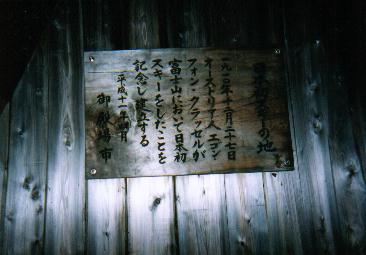 日本初スキーの地
一九一〇年十二月二十七日
オーストリア人 エゴン
フォン・クラッセルが
富士山において日本初
スキーをしたことを
記念し建立する
平成十一年 月
御殿場市